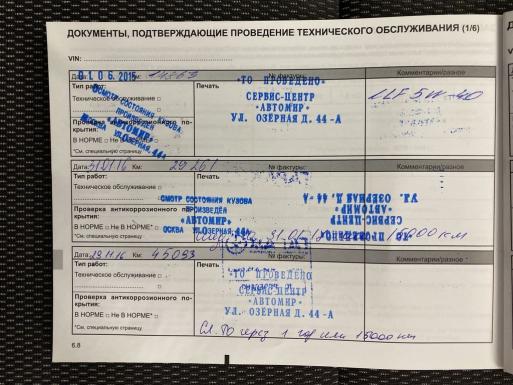 ДОКУМЕНТЫ, ПОДТВЕРЖДАЮЩИЕ ПРОВЕДЕНИЕ ТЕХНИЧЕСКОГО ОБСЛУЖИВАНИЯ (1/6)
VIN:
Дата: 01.06.2015 Км: 14863 № фактуры: Комментарии/разное
Тип работ: Печать
Техническое обслуживание
Проверка антикоррозионного покрытия:
В НОРМЕ Не В НОРМЕ*
*См. специальную страницу
ОСМОТР СОСТОЯНИЯ КУЗОВА
ПРОИЗВЕДЁН
"АВТОМИР"
МОСКВА УЛ. ОЗЕРНАЯ, 44А
"ТО ПРОВЕДЕНО"
СЕРВИС-ЦЕНТР
"АВТОМИР"
УЛ. ОЗЕРНАЯ Д. 44-А
5W-40
Дата: 31.01.16 Км: 29261 № фактуры: Комментарии/разное
Тип работ: Печать
Техническое обслуживание
Проверка антикоррозионного покрытия:
В НОРМЕ Не В НОРМЕ*
*См. специальную страницу
СМОТР СОСТОЯНИЯ КУЗОВА
ПРОИЗВЕДЁН
"АВТОМИР"
ОСКВА УЛ. ОЗЕРНАЯ, 44А
ТО ПРОВЕДЕНО
СЕРВИС-ЦЕНТР
"АВТОМИР"
УЛ. ОЗЕРНАЯ Д. 44-А
31.01 15000 км
Дата: Км: 45093 № фактуры: Комментарии/разное
Тип работ: Печать
Техническое обслуживание
Проверка антикоррозионного покрытия:
В НОРМЕ Не В НОРМЕ*
*См. специальную страницу
"ТО ПРОВЕДЕНО
СЕРВИС-ЦЕНТР
"АВТОМИР"
УЛ. ОЗЕРНАЯ Д. 44-А
Сл. ТО через 1 год или 15000 км
6.8